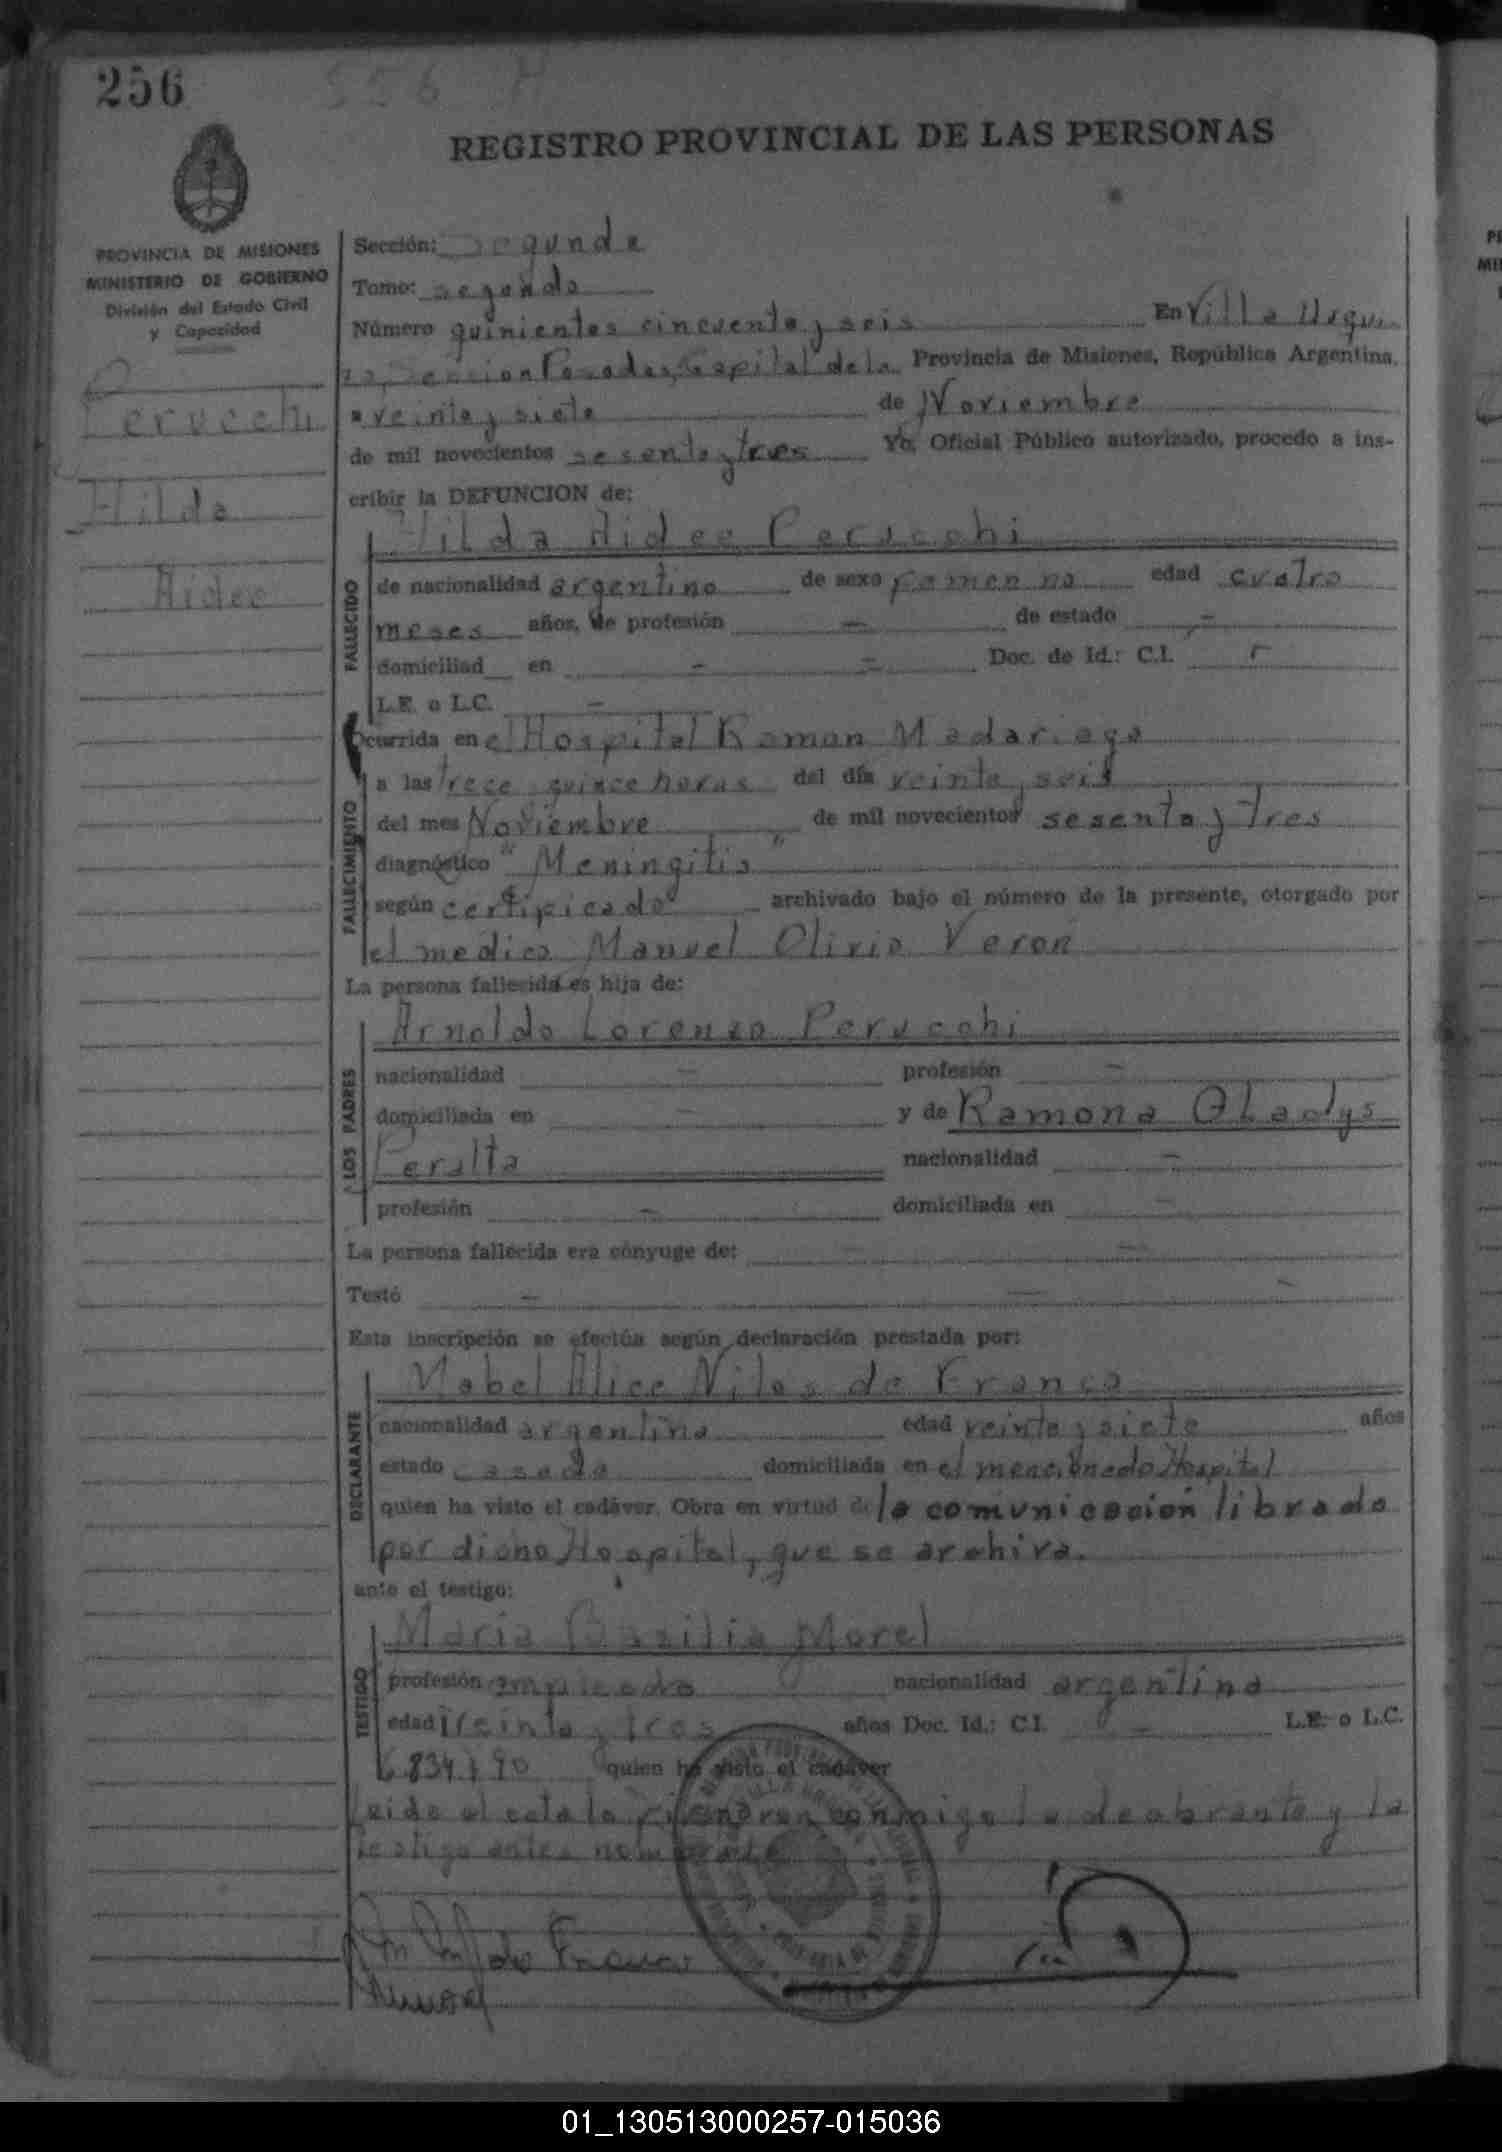 256
556 A
REGISTRO PROVINCIAL DE LAS PERSONAS
PROVINCIA DE MISIONES
MINISTERIO DE GOBIERNO
División del Estado Civil
y Capacidad
Perucchi
Hilda
Aidee
Sección: Segunda
Tomo: segundo
Número quinientos cincuenta y seis En Villa Urqui
za, Seccion Posadas, Capital de la Provincia de Misiones, República Argentina,
a veinte y siete de Noviembre
de mil novecientos sesenta y tres Yo, Oficial Público autorizado, procedo a ins-
cribir la DEFUNCION de:
FALLECIDO
Hilda Aidee Perucchi
de nacionalidad argentina de sexo femenino edad cuatro
meses años, de profesión — de estado —
domiciliad en — — Doc. de Id.: C.I. —
L.E. o L.C. —
FALLECIMIENTO
Ocurrida en el Hospital Ramon Madariaga
a las trece quince horas del día veinte y seis
del mes Noviembre de mil novecientos sesenta y tres
diagnóstico "Meningitis"
según certificado archivado bajo el número de la presente, otorgado por
el medico Manuel Olivio Veron
La persona fallecida es hija de:
LOS PADRES
Arnoldo Lorenzo Perucchi
nacionalidad — profesión —
domiciliada en — y de Ramona Gladys
Peralta nacionalidad —
profesión — domiciliada en —
La persona fallecida era cónyuge de: — —
Testó — — —
Esta inscripción se efectúa según declaración prestada por:
DECLARANTE
Mabel Alice Nilos de Franco
nacionalidad argentina edad veinte y siete años
estado casada domiciliada en el mencionado Hospital
quien ha visto el cadáver. Obra en virtud de la comunicación librado
por dicho Hospital, que se archiva.
ante el testigo:
TESTIGO
Maria Basilia Morel
profesión empleada nacionalidad argentina
edad Treinta y tres años Doc. Id.: C.I. — L.E. o L.C.
6.834.190 quien ha visto el cadáver
Leida el acta la firmaron conmigo la declarante y la
testigo antes nombrada
de Franco
01_130513000257-015036